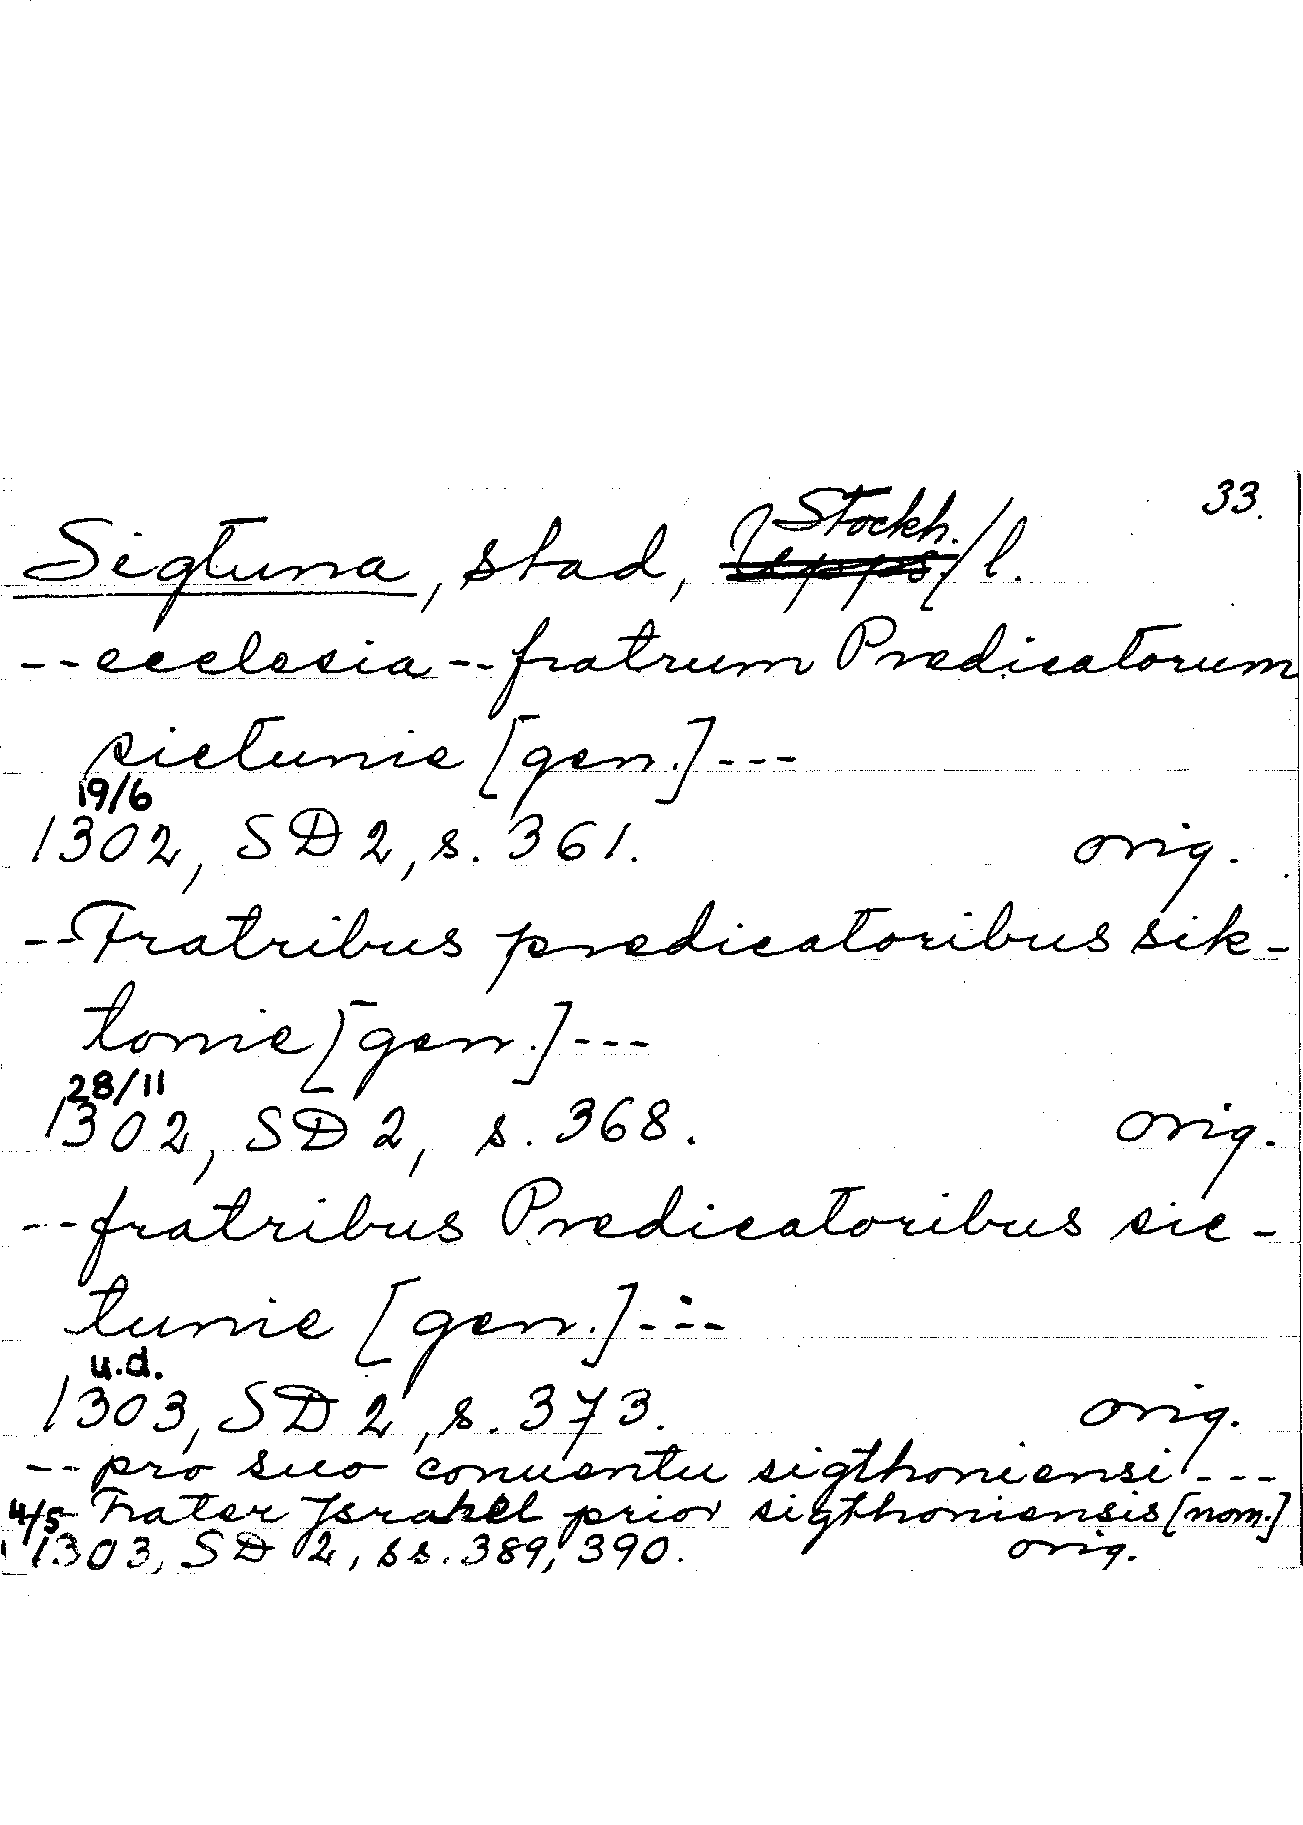 33.
Sigtuna, stad, Upps Stockh./l.
--ecclesia--fratrum Predicatorum
sictunie [gen.]---
19/6
1302, SD 2, s. 361. orig.
--Fratribus predicatoribus sik-
tonie [gen.]---
28/11
1302, SD 2, s. 368. orig.
--fratribus Predicatoribus sic-
tunie [gen.]---
u.d.
1303, SD 2, s. 373. orig.
--pro suo conuentu sigthoniensi---
4/5 Frater Jsrahel prior sigthoniensis [nom.]
1303, SD 2, ss. 389, 390. orig.